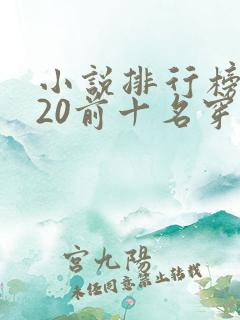 小説排行榜
20前十名穿
宮九陽
未经同意禁止转载